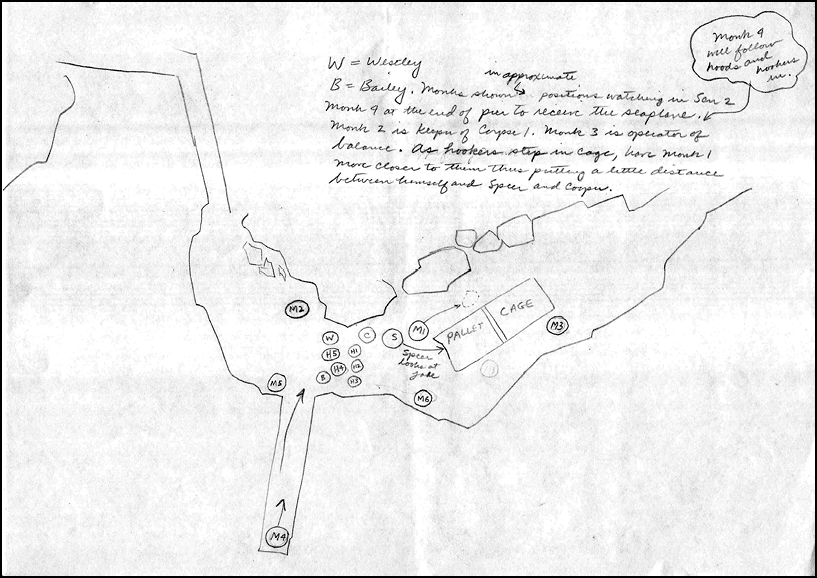 Monk 4
will follow
hoods and
hookers
in.
W = Weseley
in approximate
B = Bailey. Monks shown positions watching in Scn 2
Monk 4 at the end of pier to receive the seaplane.
Monk 2 is keeper of Corpse 1. Monk 3 is operator of
balance. As hookers step in cage, have Monk 1
move closer to them thus putting a little distance
between himself and Speer and Cooper.
M2
W
C
S
M1
PALLET
CAGE
M3
H5
H1
H4
H2
B
H3
Speer
looks at
Jake
M5
M6
M4